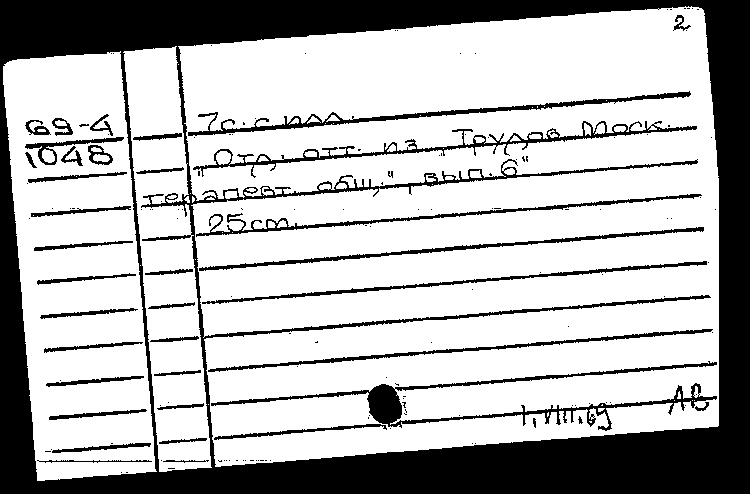 2
69-4
1048
7с. с илл.
„Отд. отт. из „Трудов Моск.
терапевт. общ.", вып. 6"
25 cm.
1.VIII.69 АВ